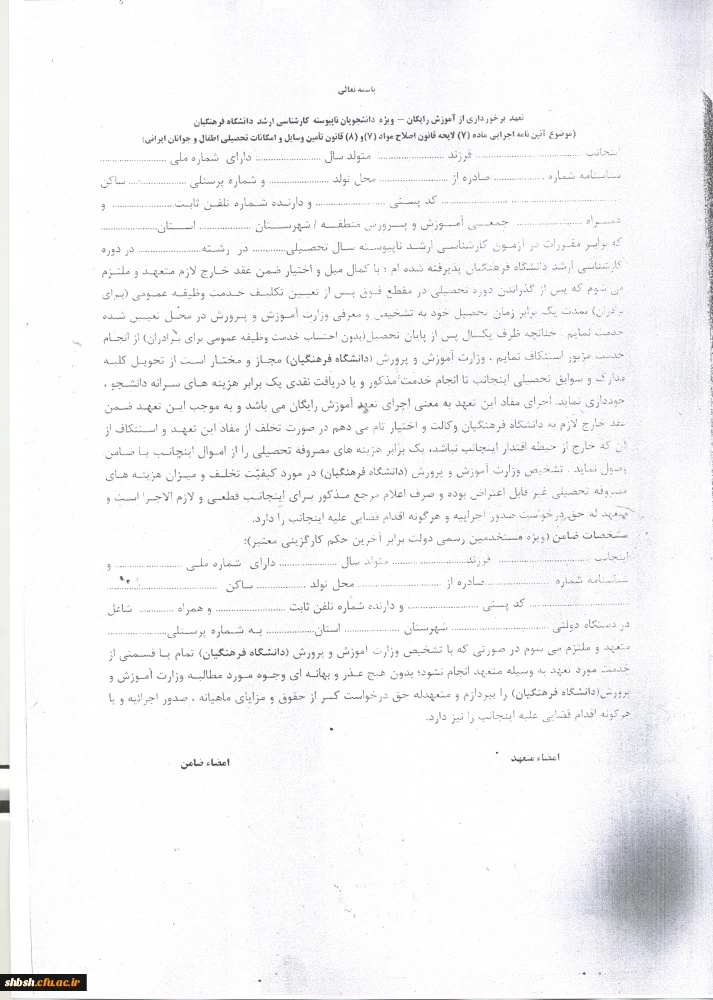 باسمه تعالی
تعهد برخورداری از آموزش رایگان – ویژه دانشجویان ناپیوسته کارشناسی ارشد دانشگاه فرهنگیان
(موضوع آئین نامه اجرایی ماده (۷) لایحه قانون اصلاح مواد (۷)و (۸) قانون تأمین وسایل و امکانات تحصیلی اطفال و جوانان ایرانی)
اینجانب ........................ فرزند ................ متولد سال ................ دارای شماره ملی ................
شناسنامه شماره ................ صادره از ................ محل تولد ................ و شماره پرسنلی ................ ساکن
................................ کد پستی ................ و دارنده شماره تلفن ثابت ................ و
همراه ................ جمعی آموزش و پرورش منطقه / شهرستان ................ استان................
که برابر مقررات در آزمون کارشناسی ارشد ناپیوسته سال تحصیلی............ در رشته................ در دوره
کارشناسی ارشد دانشگاه فرهنگیان پذیرفته شده ام ؛ با کمال میل و اختیار ضمن عقد خارج لازم متعهد و ملتزم
می شوم که پس از گذراندن دوره تحصیلی در مقطع فوق پس از تعیین تکلیف خدمت وظیفه عمومی (برای
برادران) بمدت یک برابر زمان تحصیل خود به تشخیص و معرفی وزارت آموزش و پرورش در محل تعیین شده
خدمت نمایم . چنانچه ظرف یکسال پس از پایان تحصیل(بدون احتساب خدمت وظیفه عمومی برای برادران) از انجام
خدمت مزبور استنکاف نمایم ، وزارت آموزش و پرورش (دانشگاه فرهنگیان) مجاز و مختار است از تحویل کلیه
مدارک و سوابق تحصیلی اینجانب تا انجام خدمت مذکور و یا دریافت نقدی یک برابر هزینه های سرانه دانشجو ،
خودداری نماید. اجرای مفاد این تعهد به معنی اجرای تعهد آموزش رایگان می باشد و به موجب این تعهد ضمن
عقد خارج لازم به دانشگاه فرهنگیان وکالت و اختیار تام می دهم در صورت تخلف از مفاد این تعهد و استنکاف از
آن که خارج از حیطه اقتدار اینجانب نباشد، یک برابر هزینه های مصروفه تحصیلی را از اموال اینجانب یا ضامن
وصول نماید . تشخیص وزارت آموزش و پرورش (دانشگاه فرهنگیان) در مورد کیفیت تخلف و میزان هزینه های
مصروفه تحصیلی غیر قابل اعتراض بوده و صرف اعلام مرجع مذکور برای اینجانب قطعی و لازم الاجرا است و
متعهد له حق درخواست صدور اجراییه و هرگونه اقدام قضایی علیه اینجانب را دارد.
مشخصات ضامن (ویژه مستخدمین رسمی دولت برابر آخرین حکم کارگزینی معتبر):
اینجانب ................ فرزند................ متولد سال ................ دارای شماره ملی ................ و
شناسنامه شماره ................صادره از ................ محل تولد ................ ساکن ................
................................ کد پستی ................ و دارنده شماره تلفن ثابت ................ و همراه ............ شاغل
در دستگاه دولتی ................ شهرستان ................ استان................ به شماره پرسنلی................
متعهد و ملتزم می شوم در صورتی که با تشخیص وزارت آموزش و پرورش (دانشگاه فرهنگیان) تمام یا قسمتی از
خدمت مورد تعهد به وسیله متعهد انجام نشود؛ بدون هیچ عذر و بهانه ای وجوه مورد مطالبه وزارت آموزش و
پرورش(دانشگاه فرهنگیان) را بپردازم و متعهدله حق درخواست کسر از حقوق و مزایای ماهیانه ، صدور اجرائیه و یا
هرگونه اقدام قضایی علیه اینجانب را نیز دارد.
امضاء متعهد امضاء ضامن
shbsh.cfu.ac.ir